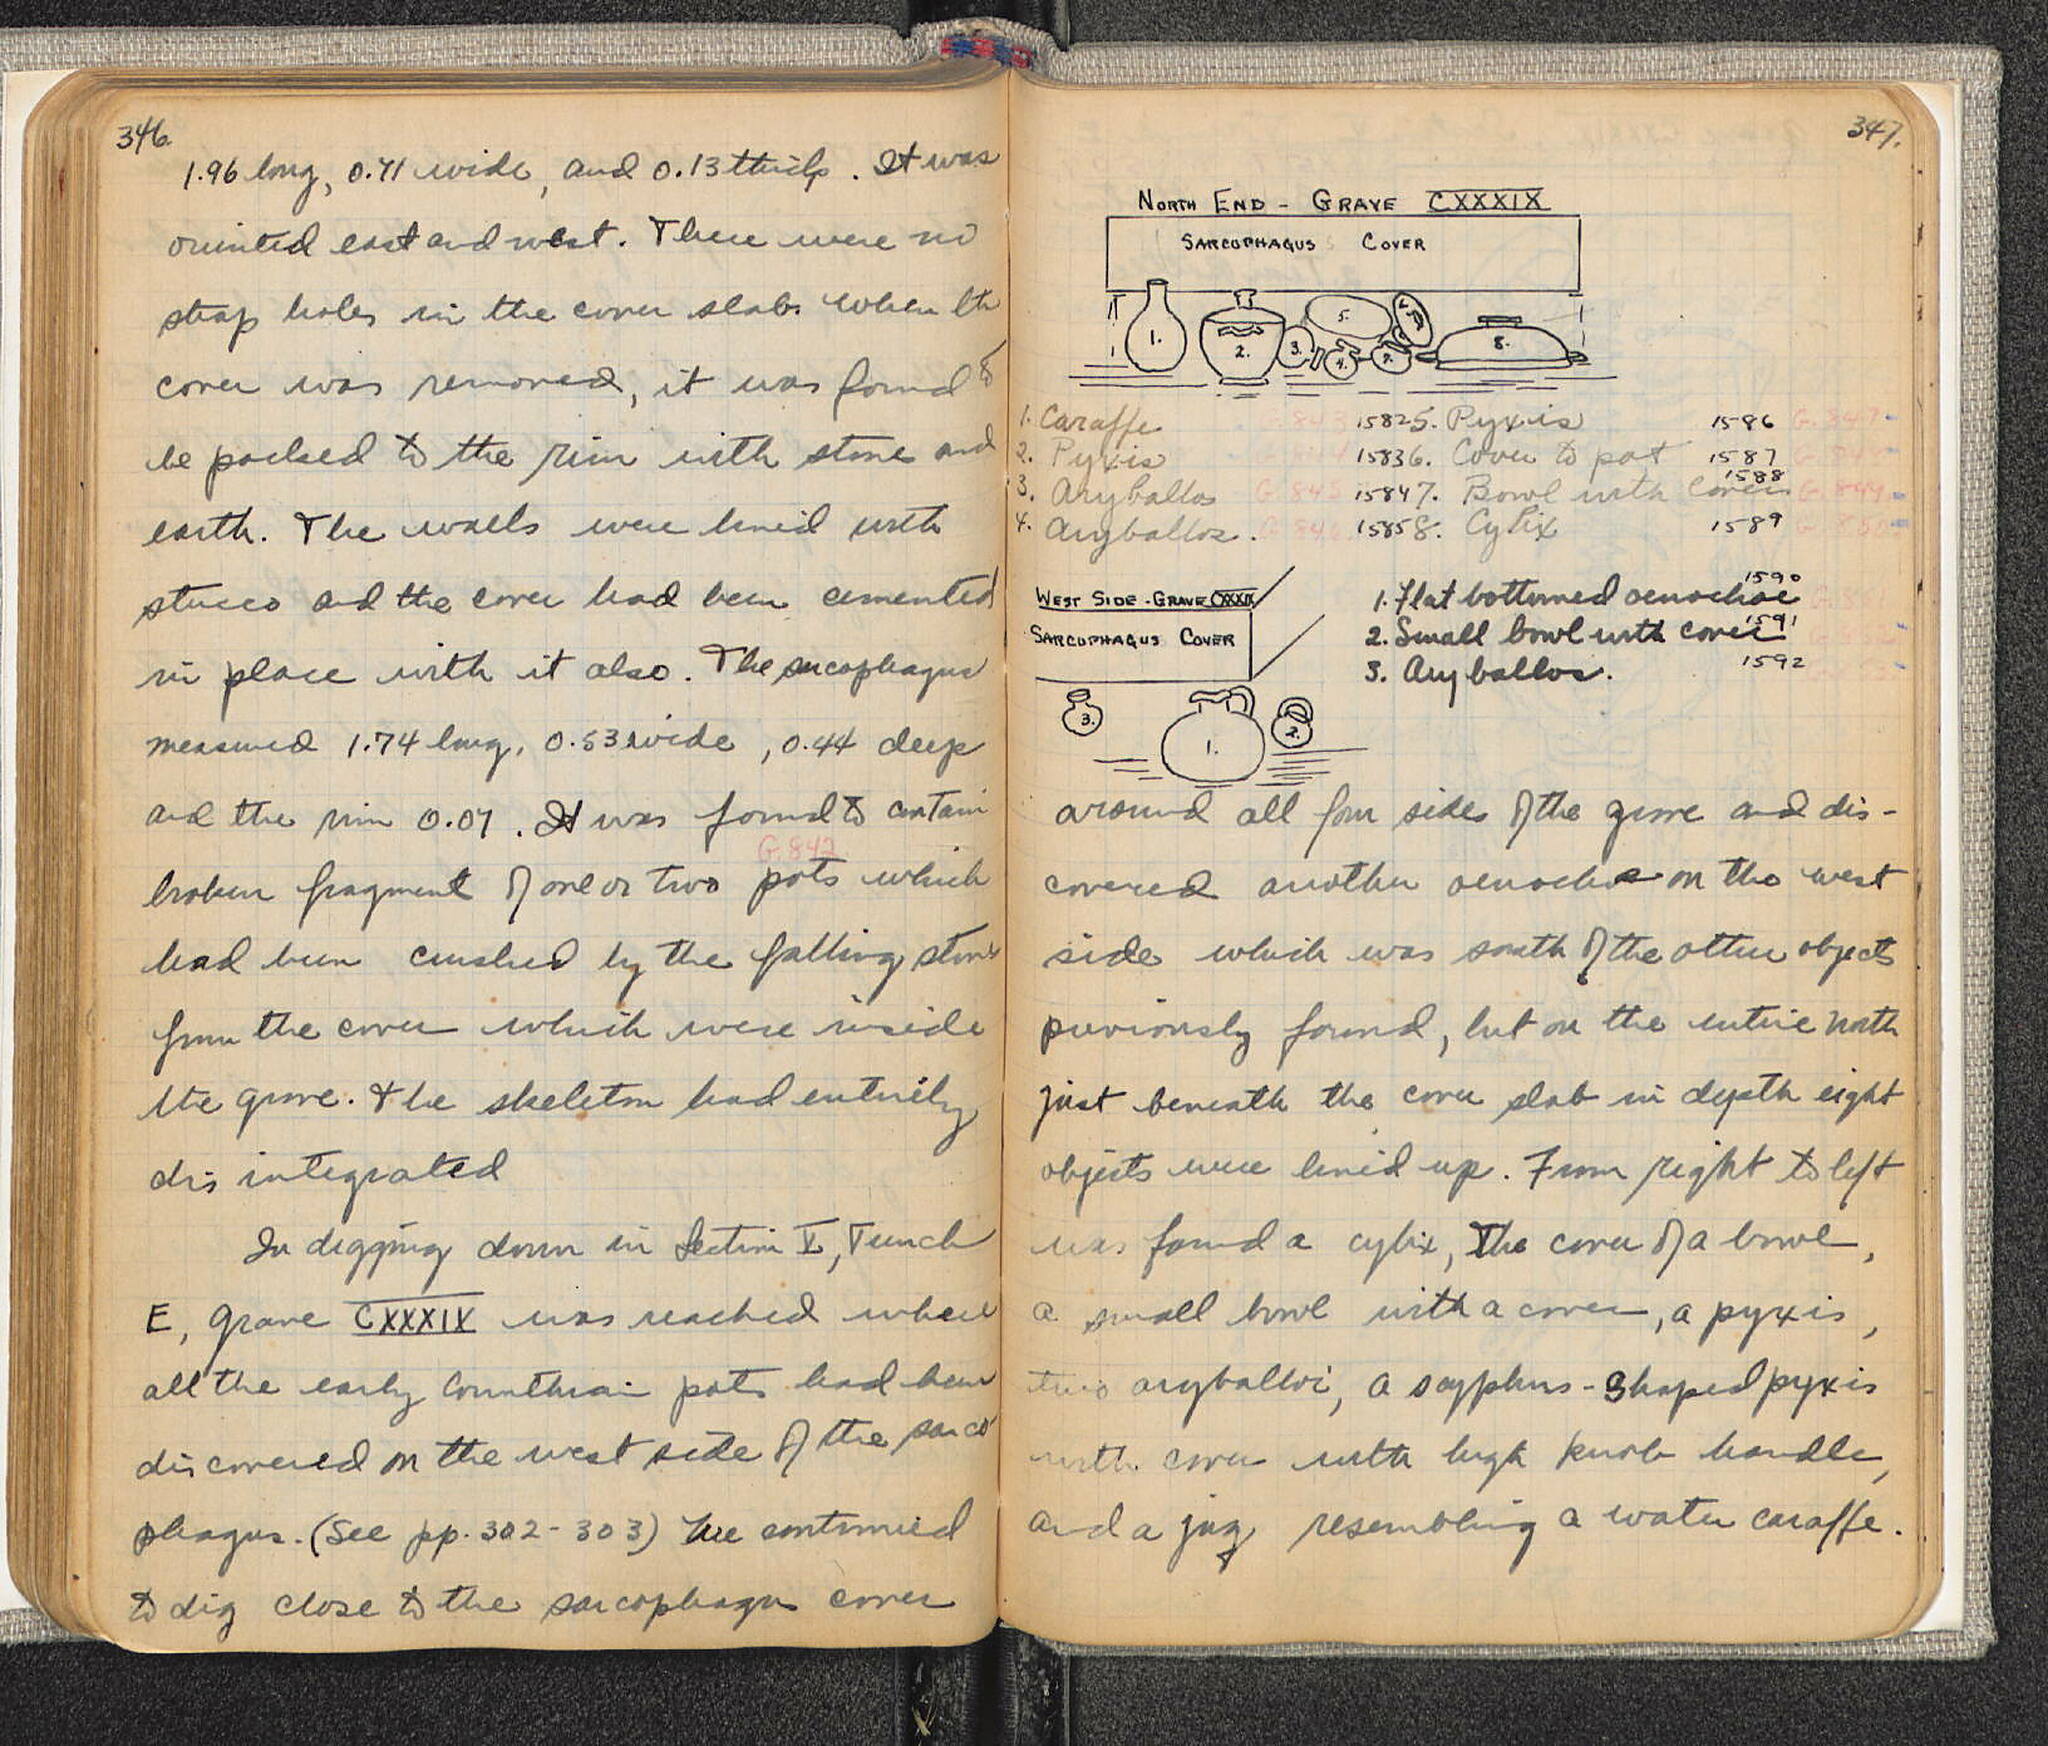 346.
1.96 long, 0.71 wide, and 0.13 thick. It was
oriented east and west. There were no
strap holes in the cover slab. When the
cover was removed, it was found to
be packed to the rim with stones and
earth. The walls were lined with
stucco and the cover had been cemented
in place with it also. The sarcophagus
measured 1.74 long, 0.53 wide, 0.44 deep
and the rim 0.07. It was found to contain
G.842
broken fragments of one or two pots which
had been crushed by the falling stones
from the cover which were inside
the grave. The skeleton had entirely
disintegrated
In digging down in Section V, Trench
E, grave CXXXIX was reached where
all the early Corinthian pots had been
discovered on the west side of the sarco-
phagus. (See pp. 302-303) We continued
to dig close to the sarcophagus cover
347.
NORTH END - GRAVE CXXXIX
SARCOPHAGUS COVER
1. 2. 3. 4. 5. 6. 7. 8.
1. Caraffe G.843 1582 5. Pyxis 1586 G.847
2. Pyxis G.844 1583 6. Cover to pot 1587 G.848
3. Aryballos G.845 1584 7. Bowl with cover 1588 G.849
4. Aryballos. G.846 1585 8. Cylix 1589 G.850
WEST SIDE - GRAVE CXXXIX
SARCOPHAGUS COVER
3. 1. 2.
1. Flat bottomed oenochoe 1590
2. Small bowl with cover 1591
3. Aryballos. 1592
around all four sides of the grave and dis-
covered another oenochoe on the west
side which was south of the other objects
previously found, but on the entire north
just beneath the cover slab in depth eight
objects were lined up. From right to left
was found a cylix, the cover of a bowl,
a small bowl with a cover, a pyxis,
two aryballoi, a scyphus-shaped pyxis
with cover with high knob handle,
and a jug resembling a water caraffe.